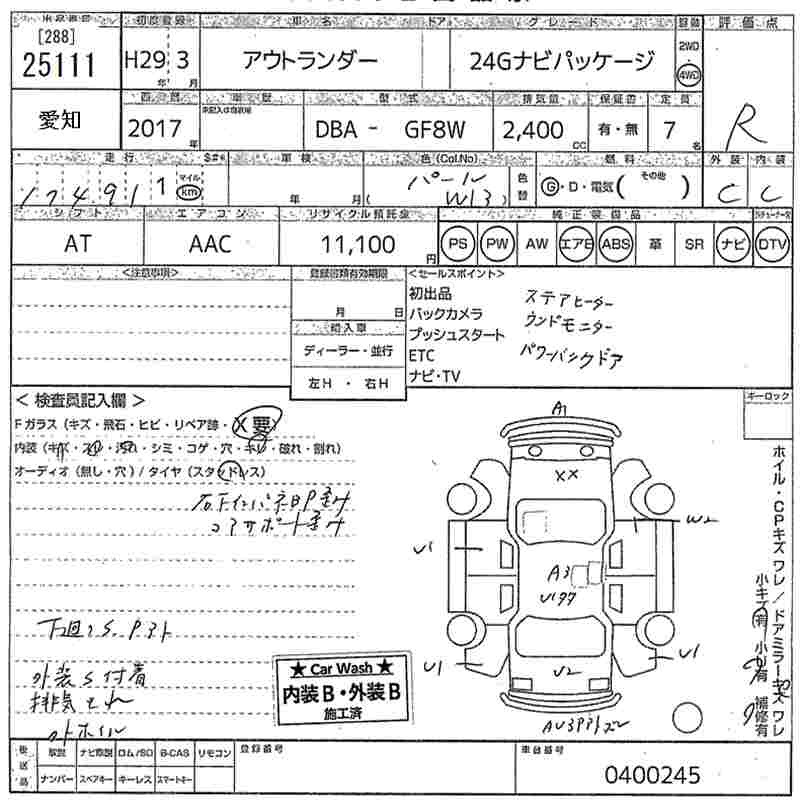 出品番号 初度登録 車名 ドア グレード 駆動 評価点
[288]
25111 H29 年 3 月 アウトランダー 24Gナビパッケージ 2WD 4WD
R
西暦 車歴 型式 排気量 保証書 定員
愛知 2017 年 未記入は自家用 DBA - GF8W 2,400 CC 有・無 7 名
走行 車検 色(Col.No) 燃料 外装 内装
174,911 マイル km 年 月 パール (W13) 色替 G・D・電気( その他 ) C C
シフト エアコン リサイクル預託金 純正装備品
AT AAC 11,100 円 PS PW AW エアB ABS 革 SR ナビ DTV
<注意事項> 登録書類有効期限 <セールスポイント>
月 日 初出品 ステアヒーター
輸入車 バックカメラ
ディーラー・並行 プッシュスタート パワーバックドア
左H ・ 右H ETC
ナビ・TV
キーロック
< 検査員記入欄 >
Fガラス(キズ・飛石・ヒビ・リペア跡・X要)
内装(キズ・スレ・汚れ・シミ・コゲ・穴・キレ・破れ・割れ)
オーディオ(無し・穴)/タイヤ(スタッドレス)
コアサポート歪み
下廻りS、Pアト
外装S付着
ホイル・CPキズ ワレ/ドアミラーキズ ワレ
小キズ有 小凹有 補修有
A1
XX
W2
U1
A3
U1
U1
U2
★ Car Wash ★
内装B・外装B
施工済
後送品 取説 ナビ取説 ロム/SD B-CAS リモコン 登録番号 車台番号
ナンバー スペアキー キーレス スマートキー 0400245